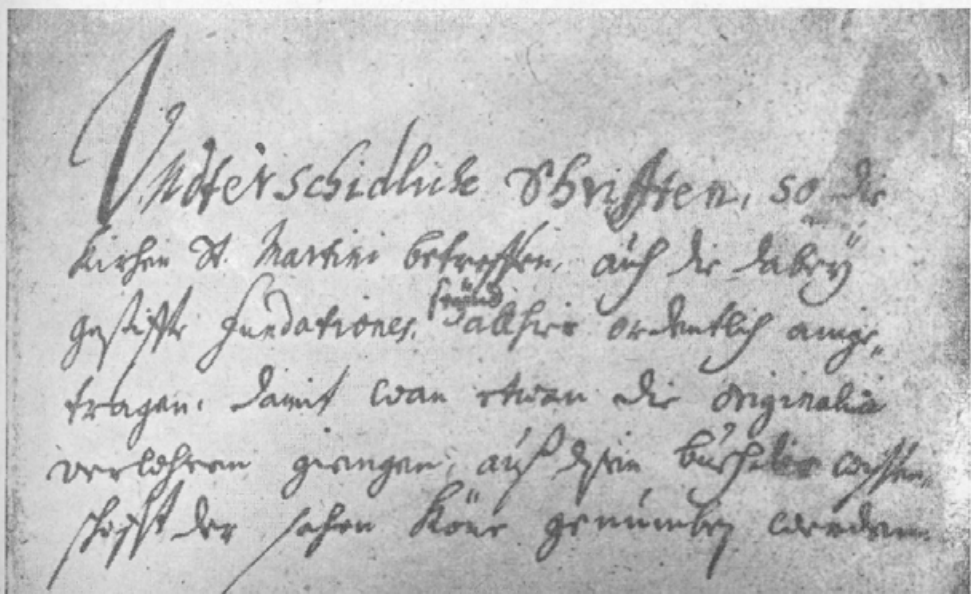 Undterschidliche Schrifften, so die
Kirchen St. Martini betreffen, auch die dabey
gestiffte Fundationes, seind allhier ordentlich einge„
tragen, damit wan etwan die originalia
verlohren giengen, auß disem büchlein wissen„
schafft der sachen köne genumben werden.